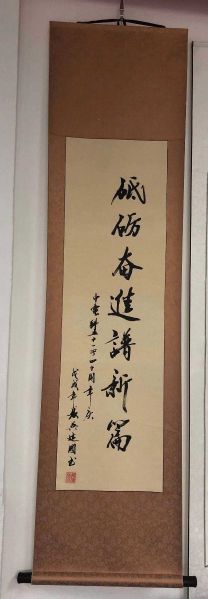 砥砺奋進譜新篇
中電科五十一所四十周年庆
戊戌年
建國书